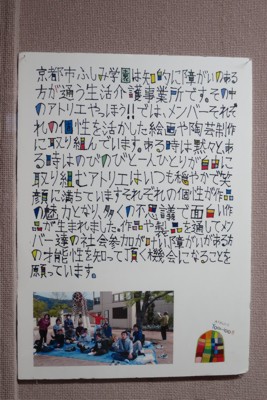 京都市ふしみ学園は知的に障がいのある
方が通う生活介護事業所です。その中
のアトリエやっほう!!では、メンバーそれぞ
れの個性を活かした絵画や陶芸制作
に取り組んでいます。ある時は黙々と、あ
る時はのびのびと一人ひとりが自由に
取り組むアトリエはいつも穏やかで笑
顔に満ちていますそれぞれの個性が作品
の魅力となり、多くの不思議で面白い作
品が生まれました。作品や製品を通してメン
バー達の社会参加が叶い、障がいがある方
の才能性を知って頂く機会になることを
願っています。